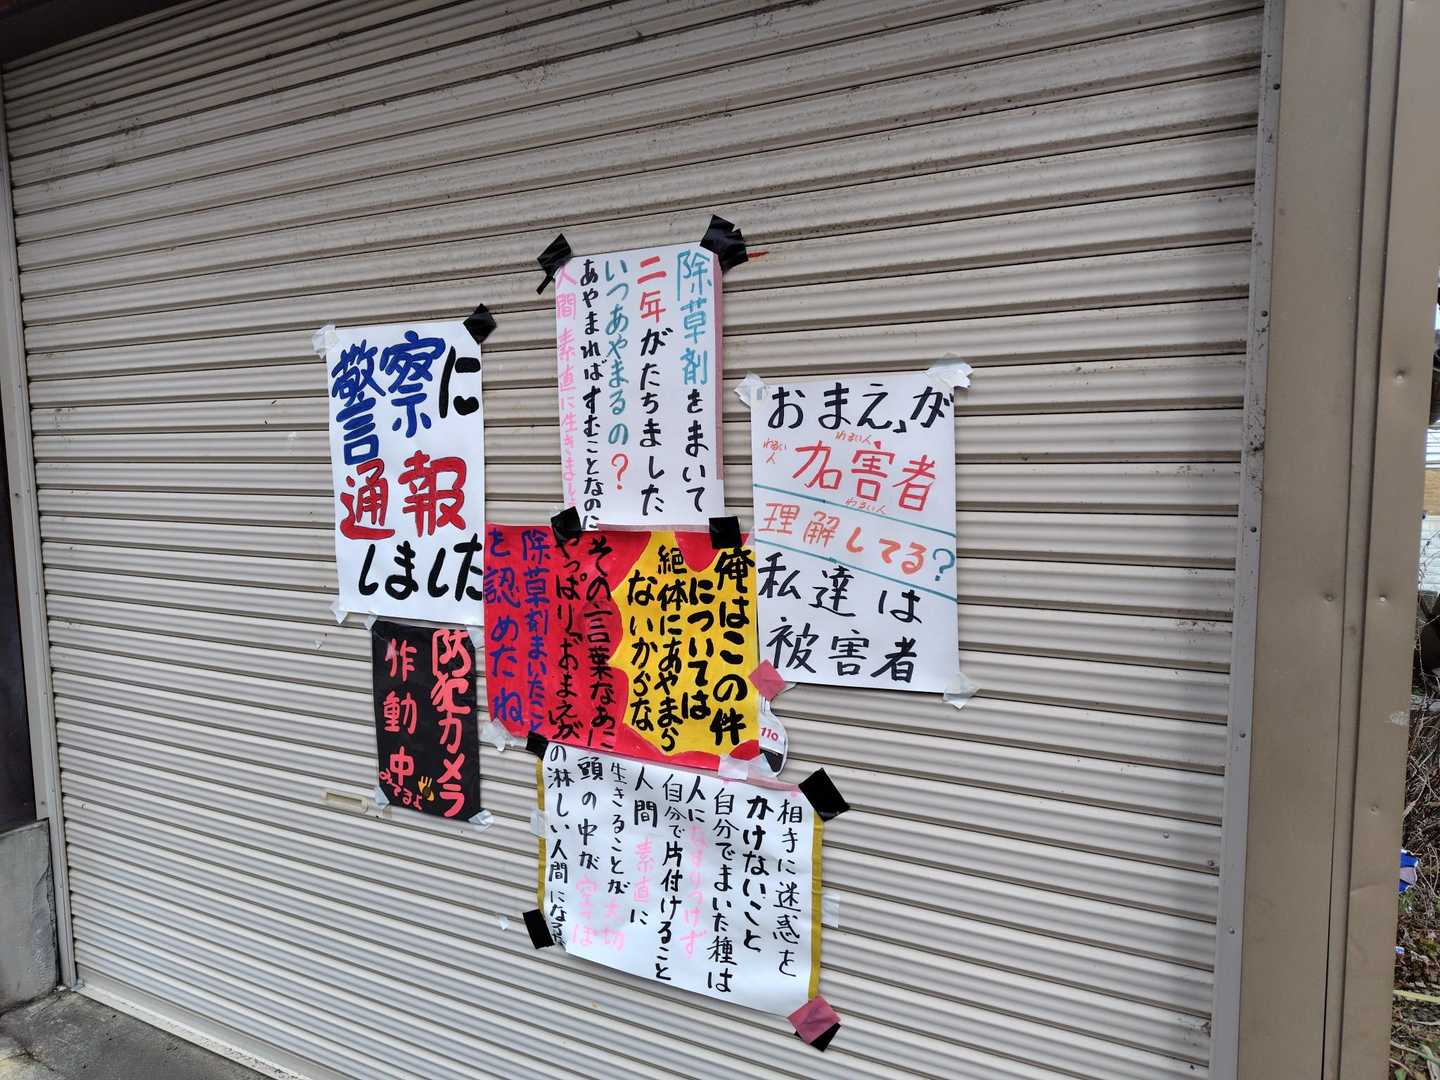 警察に
通報
しました
防犯カメラ
作動中
みてるよ
除草剤をまいて
二年がたちました
いつあやまるの?
あやまればすむことなのに
人間素直に生きましょ
おまえが
わるい人
わるい人
加害者
わるい人
理解してる?
私達は
被害者
俺はこの件
については
絶体にあやまら
ないからな
その言葉なあに
やっぱりおまえが
除草剤まいたこと
を認めたね
110
相手に迷惑を
かけないこと
自分でまいた種は
人になすりつけず
自分で片付けること
人間素直に
生きることが大切
頭の中が空っぽ
の淋しい人間になる